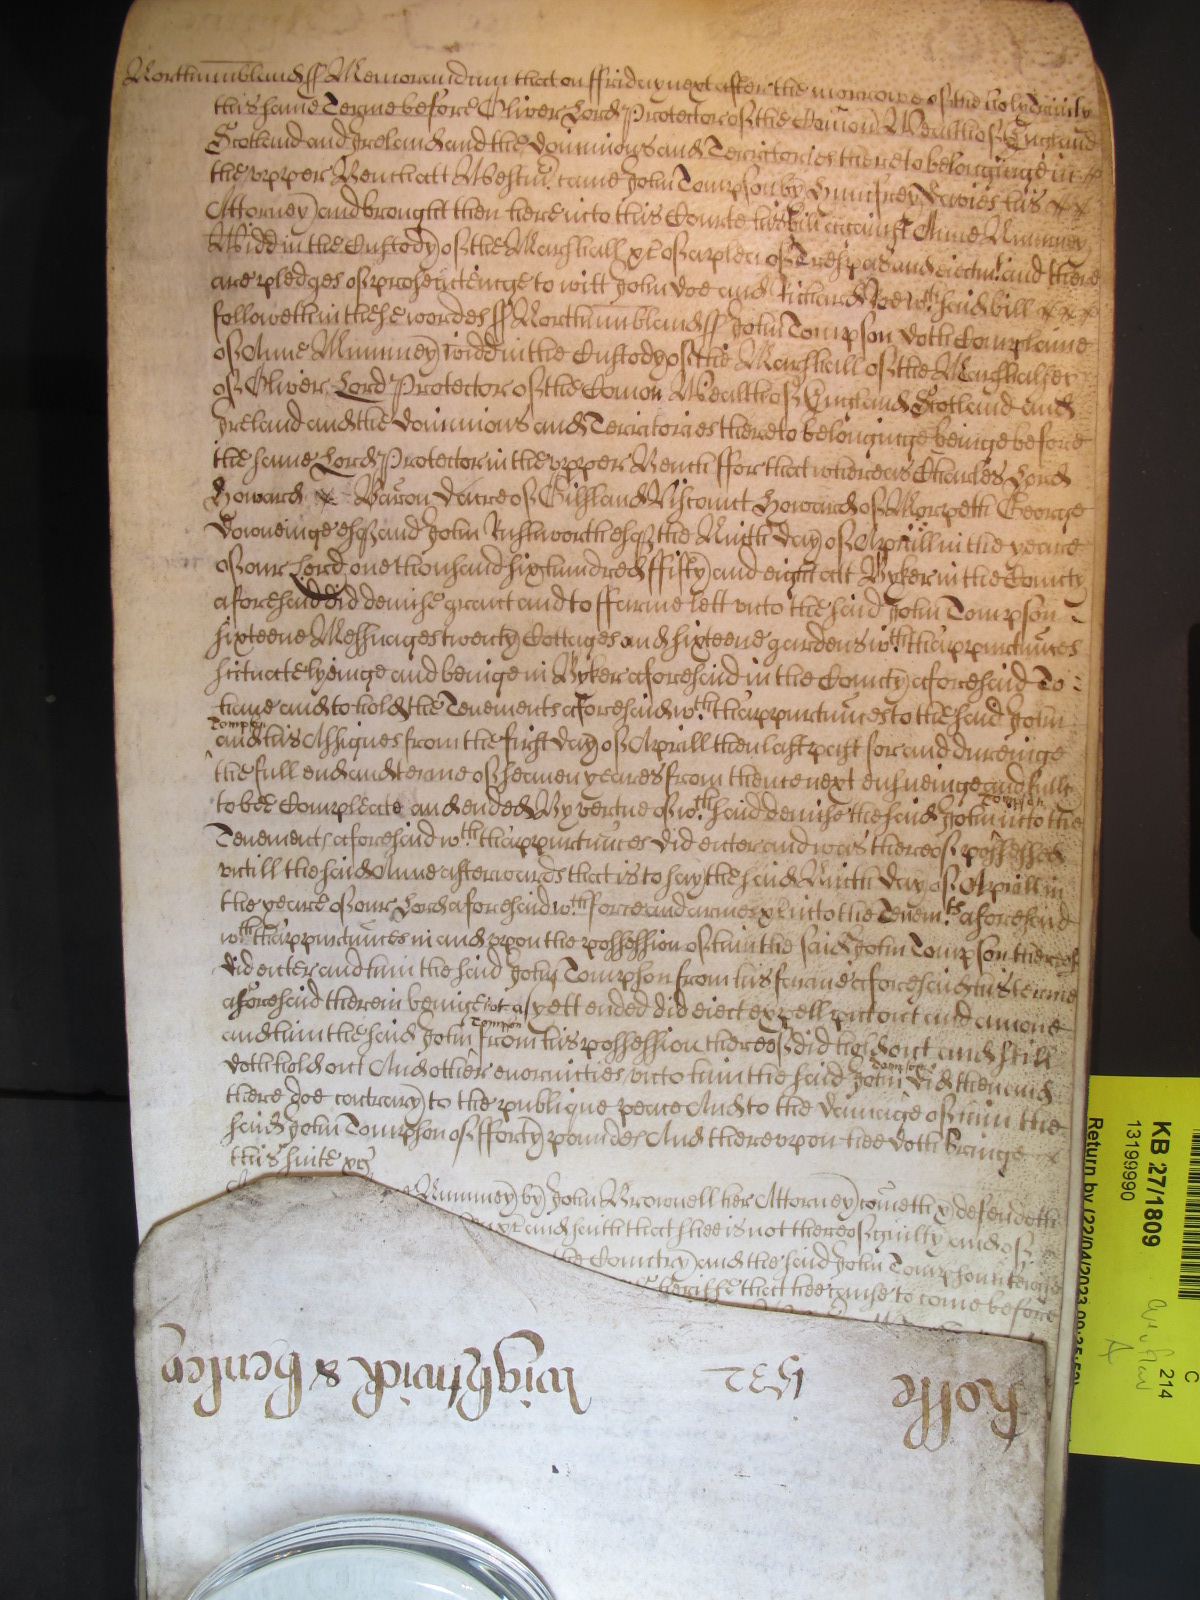 Northumbland ss Memorandum that on ffriday next after the morrowe of the holy Trinity
this same Terme before Oliver Lord Protector of the Comon Wealth of England
Scotland and Ireland and the Dominions and Territories thereto belonginge in
the vpper Bench att Westm: came John Tompson by Humfrey Davies his
Attorney and brought then here into this Courte his bill against Anne Mummey
Widd in the Custody of the Marshall &c of a plea of Trespas and eiectmt and there
are pledges of prosecuteinge to witt John Doe and Richard Roe wch said bill
followeth in these wordes ss Northumbland ss John Tompson doth Complaine
of Anne Mummey widd in the Custody of the Marshall of the Marshalsey
of Oliver Lord Protector of the Comon Wealth of England Scotland and
Ireland and the Dominions and Territories thereto belonginge beinge before
the same Lord Protector in the vpper Bench ffor that whereas Charles Lord
Howard Baron Dacre of Gilsland Viscount Howard of Morpeth George
Downeinge esqr and John Rushworth esqr the Ninth day of Aprill in the yeare
of our Lord one thousand six hundred ffifty and eight att Byker in the County
aforesaid did demise grant and to ffarme lett vnto the said John Tompson
sixteene Messuages twenty Cottages and sixteene gardens wth thappurtnces
scituate lyeinge and beinge in Byker aforesaid in the County aforesaid To
haue and to hold the Tenements aforesaid wth thappurtnces to the said John
Tompson
and his Assignes from the first day of Aprill then last past for and dureinge
the full end and terme of seauen yeares from thence next ensueinge and fully
to bee Compleate and ended By vertue of wch said demise the said John Tompson into the
Tenements aforesaid wth thappurtnces did enter and was thereof possessed
vntill the said Anne afterwards that is to say the said Ninth day of Aprill in
the yeare of our Lord aforesaid wth force and armes &c into the Tenemts aforesaid
wth thappurtnces in and vpon the possession of him the said John Tompson thereof
did enter and him the said John Tompson from his farme aforesaid his terme
aforesaid therein beinge not as yett ended did eiect expell put out and amoue
and him the said John Tompson from his possession thereof did hold out and still
doth hold out And other enormities vnto him the said John Tompson did then and
there doe contrary to the publique peace And to the damage of him the
said John Tompson of fforty poundes And therevpon hee doth bringe
this suite &c
Mummey by John Brownell her Attorney cometh & defendeth
&c and saith that shee is not thereof guilty and of
the Country and the said John Tompson likewise
Sheriffe that hee cause to come before
Rolle
1532
wightwick & henley
KB 27/1809
13199990
Return by (22/04/2023
C
214